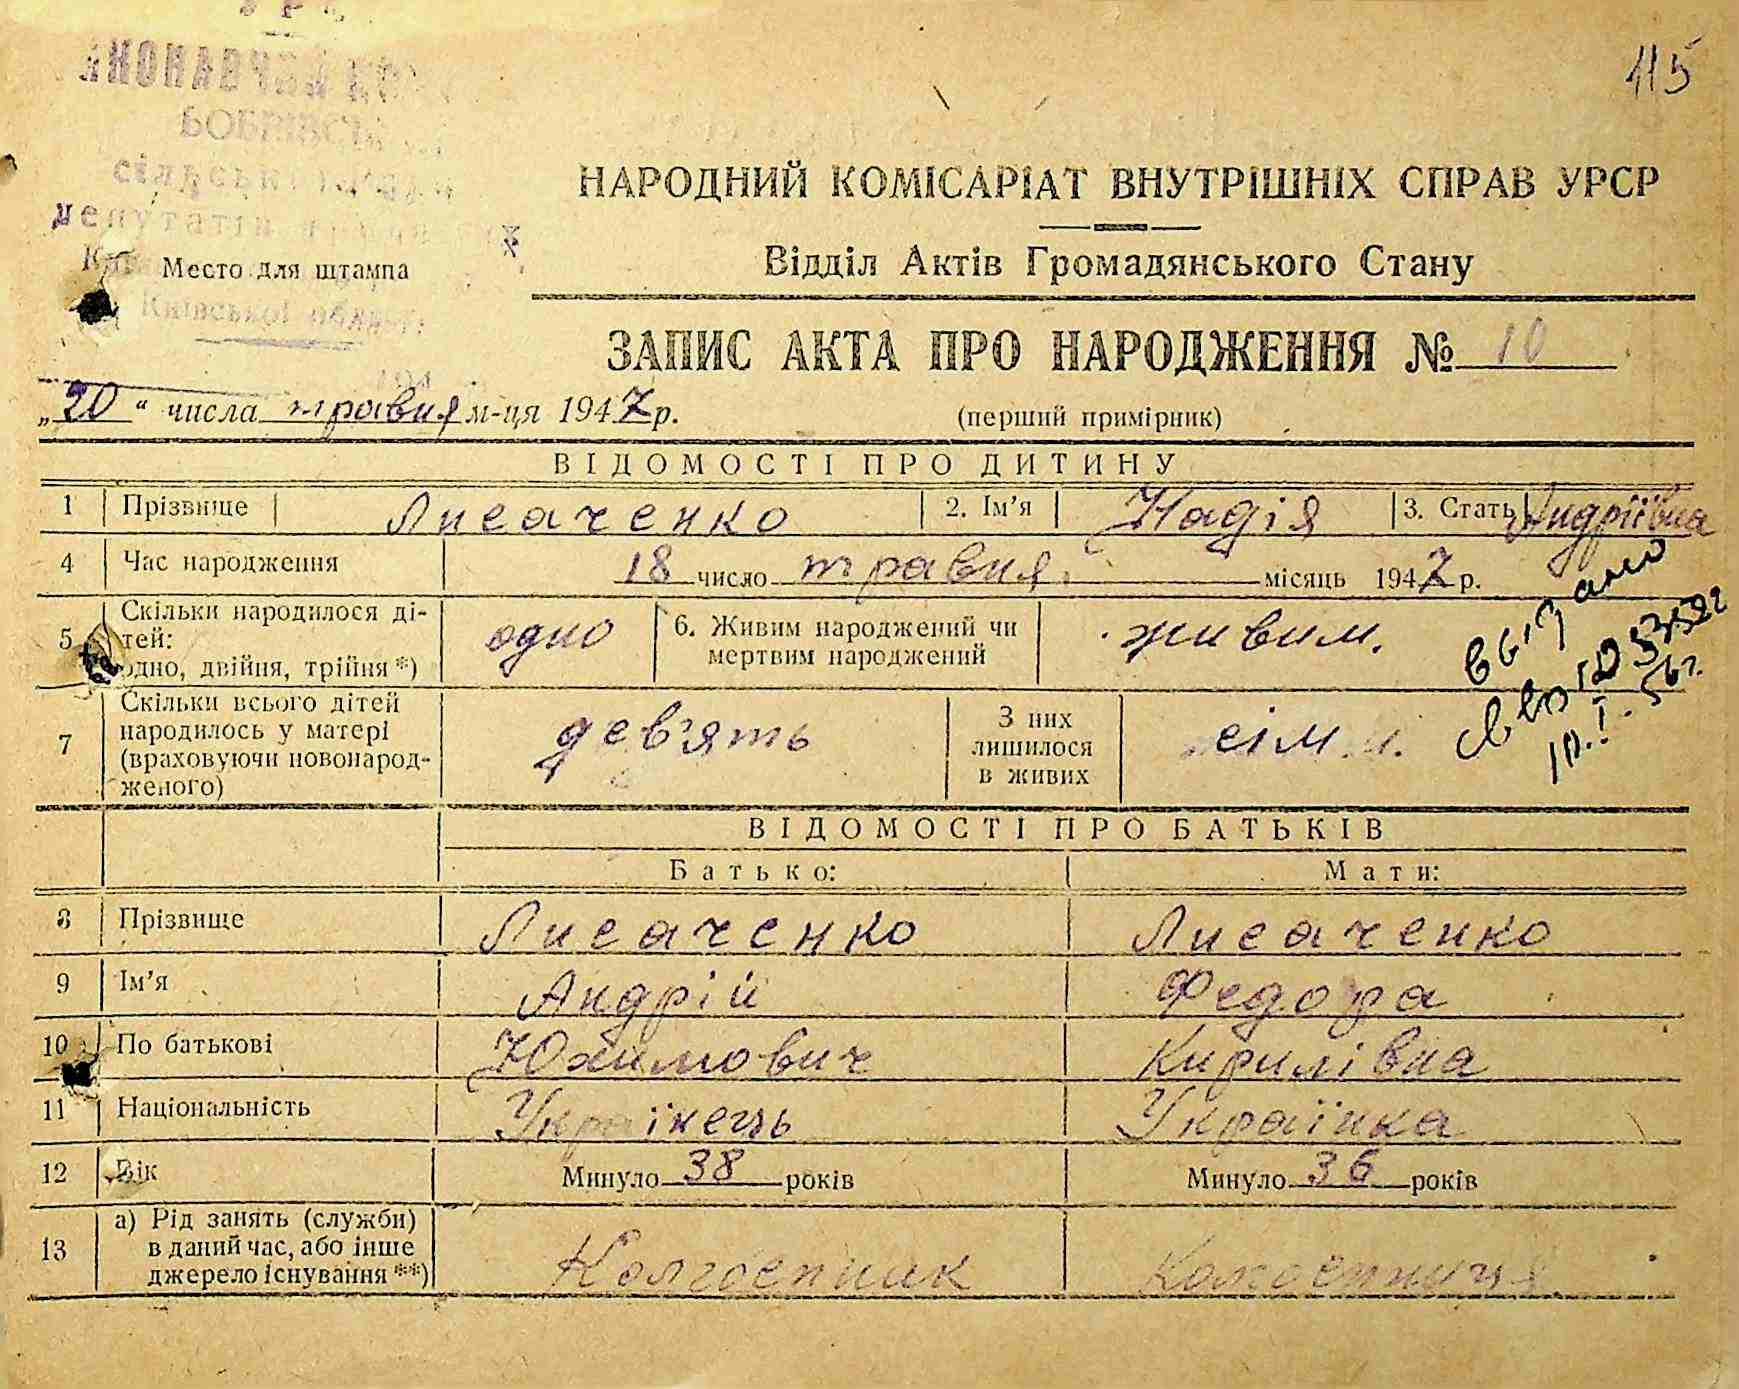 115
сільської
депутатів
НАРОДНИЙ КОМІСАРІАТ ВНУТРІШНІХ СПРАВ УРСР
Відділ Актів Громадянського Стану
Место для штампа
Київської області
ЗАПИС АКТА ПРО НАРОДЖЕННЯ № 10
„20“ числа травня м-ця 1947 р. (перший примірник)
ВІДОМОСТІ ПРО ДИТИНУ
1 Прізвище Лисаченко 2. Ім’я Надія 3. Стать Андріївна
4 Час народження 18 число травня місяць 1947 р.
5 Скільки народилося ді-
тей:
одно, двійня, трійня*) одно 6. Живим народжений чи
мертвим народжений живим.
7 Скільки всього дітей
народилось у матері
(враховуючи новонарод-
женого) дев'ять З них
лишилося
в живих сім
выдано
10.I.56г.
ВІДОМОСТІ ПРО БАТЬКІВ
Батько: Мати:
8 Прізвище Лисаченко Лисаченко
9 Ім’я Андрій Федора
10 По батькові Юхимович Кирилівна
11 Національність Українець Українка
12 Вік Минуло 38 років Минуло 36 років
13 а) Рід занять (служби)
в даний час, або інше
джерело існування**) Колгоспник Колгоспниця